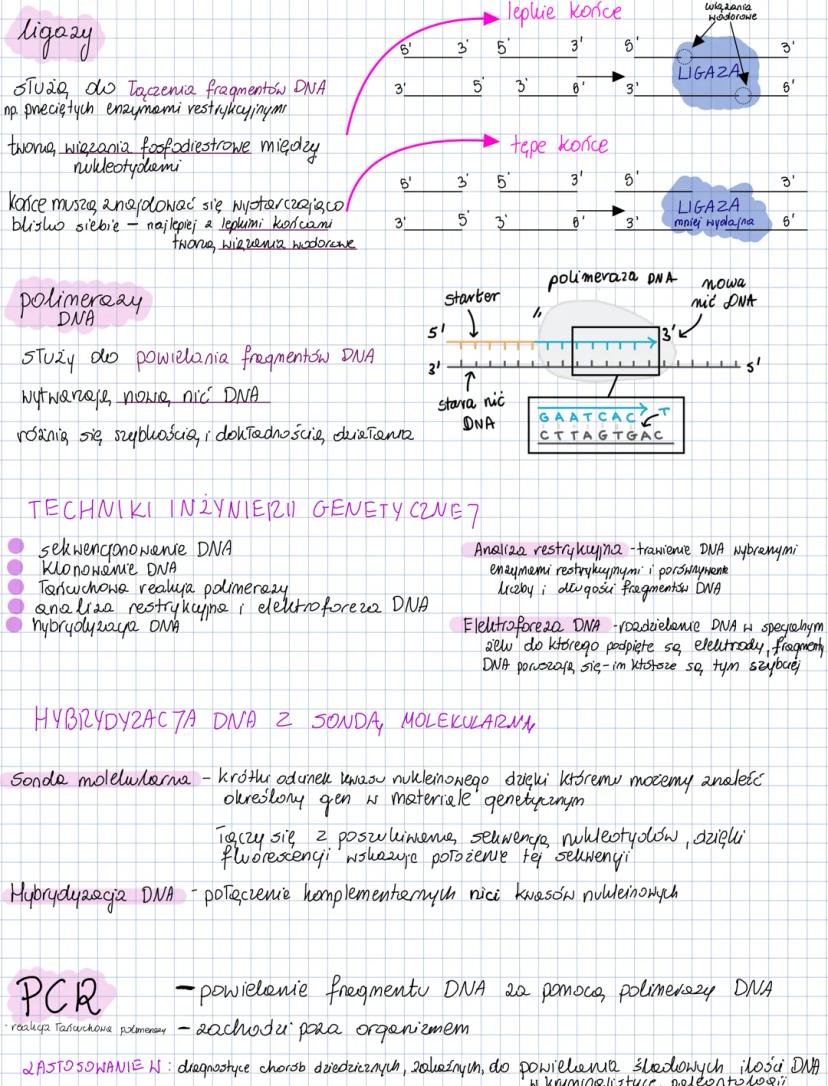 ligazy
służą do łączenia fragmentów DNA
np. przeciętych enzymami restrykcyjnymi
tworzą wiązania fosfodiestrowe między
nukleotydami
końce muszą znajdować się wystarczająco
blisko siebie – najlepiej z lepkimi końcami
tworzą wiązania wodorowe
lepkie końce
wiązania
wodorowe
5' 3' 5' 3' 5' 3'
LIGAZA
3' 5' 3' 5' 3' 5'
tępe końce
5' 3' 5' 3' 5' 3'
LIGAZA
mniej wydajna
3' 5' 3' 5' 3' 5'
polimerazy
DNA
służy do powielania fragmentów DNA
wytwarzają nową nić DNA
różnią się szybkością i dokładnością działania
polimeraza DNA
starter
nowa
nić DNA
5' 3'
3' 5'
stara nić
DNA
GAATCAC T
CTTAGTGAC
TECHNIKI INŻYNIERII GENETYCZNEJ
sekwencjonowanie DNA
klonowanie DNA
łańcuchowa reakcja polimerazy
analiza restrykcyjna i elektroforeza DNA
hybrydyzacja DNA
Analiza restrykcyjna - trawienie DNA wybranymi
enzymami restrykcyjnymi i porównywanie
liczby i długości fragmentów DNA
Elektroforeza DNA - rozdzielanie DNA w specjalnym
żelu do którego podpięte są elektrody, fragmenty
DNA poruszają się - im krótsze są tym szybciej
HYBRYDYZACJA DNA Z SONDĄ MOLEKULARNĄ
Sonda molekularna - krótki odcinek kwasu nukleinowego dzięki któremu możemy znaleźć
określony gen w materiale genetycznym
łączy się z poszukiwaną sekwencją nukleotydów, dzięki
fluorescencji wskazuje położenie tej sekwencji
Hybrydyzacja DNA - połączenie komplementarnych nici kwasów nukleinowych
PCR
- reakcja łańcuchowa polimerazy
- powielanie fragmentu DNA za pomocą polimerazy DNA
- zachodzi poza organizmem
ZASTOSOWANIE W: diagnostyce chorób dziedzicznych, zakaźnych, do powielania śladowych ilości DNA
w kryminalistyce, paleontologii